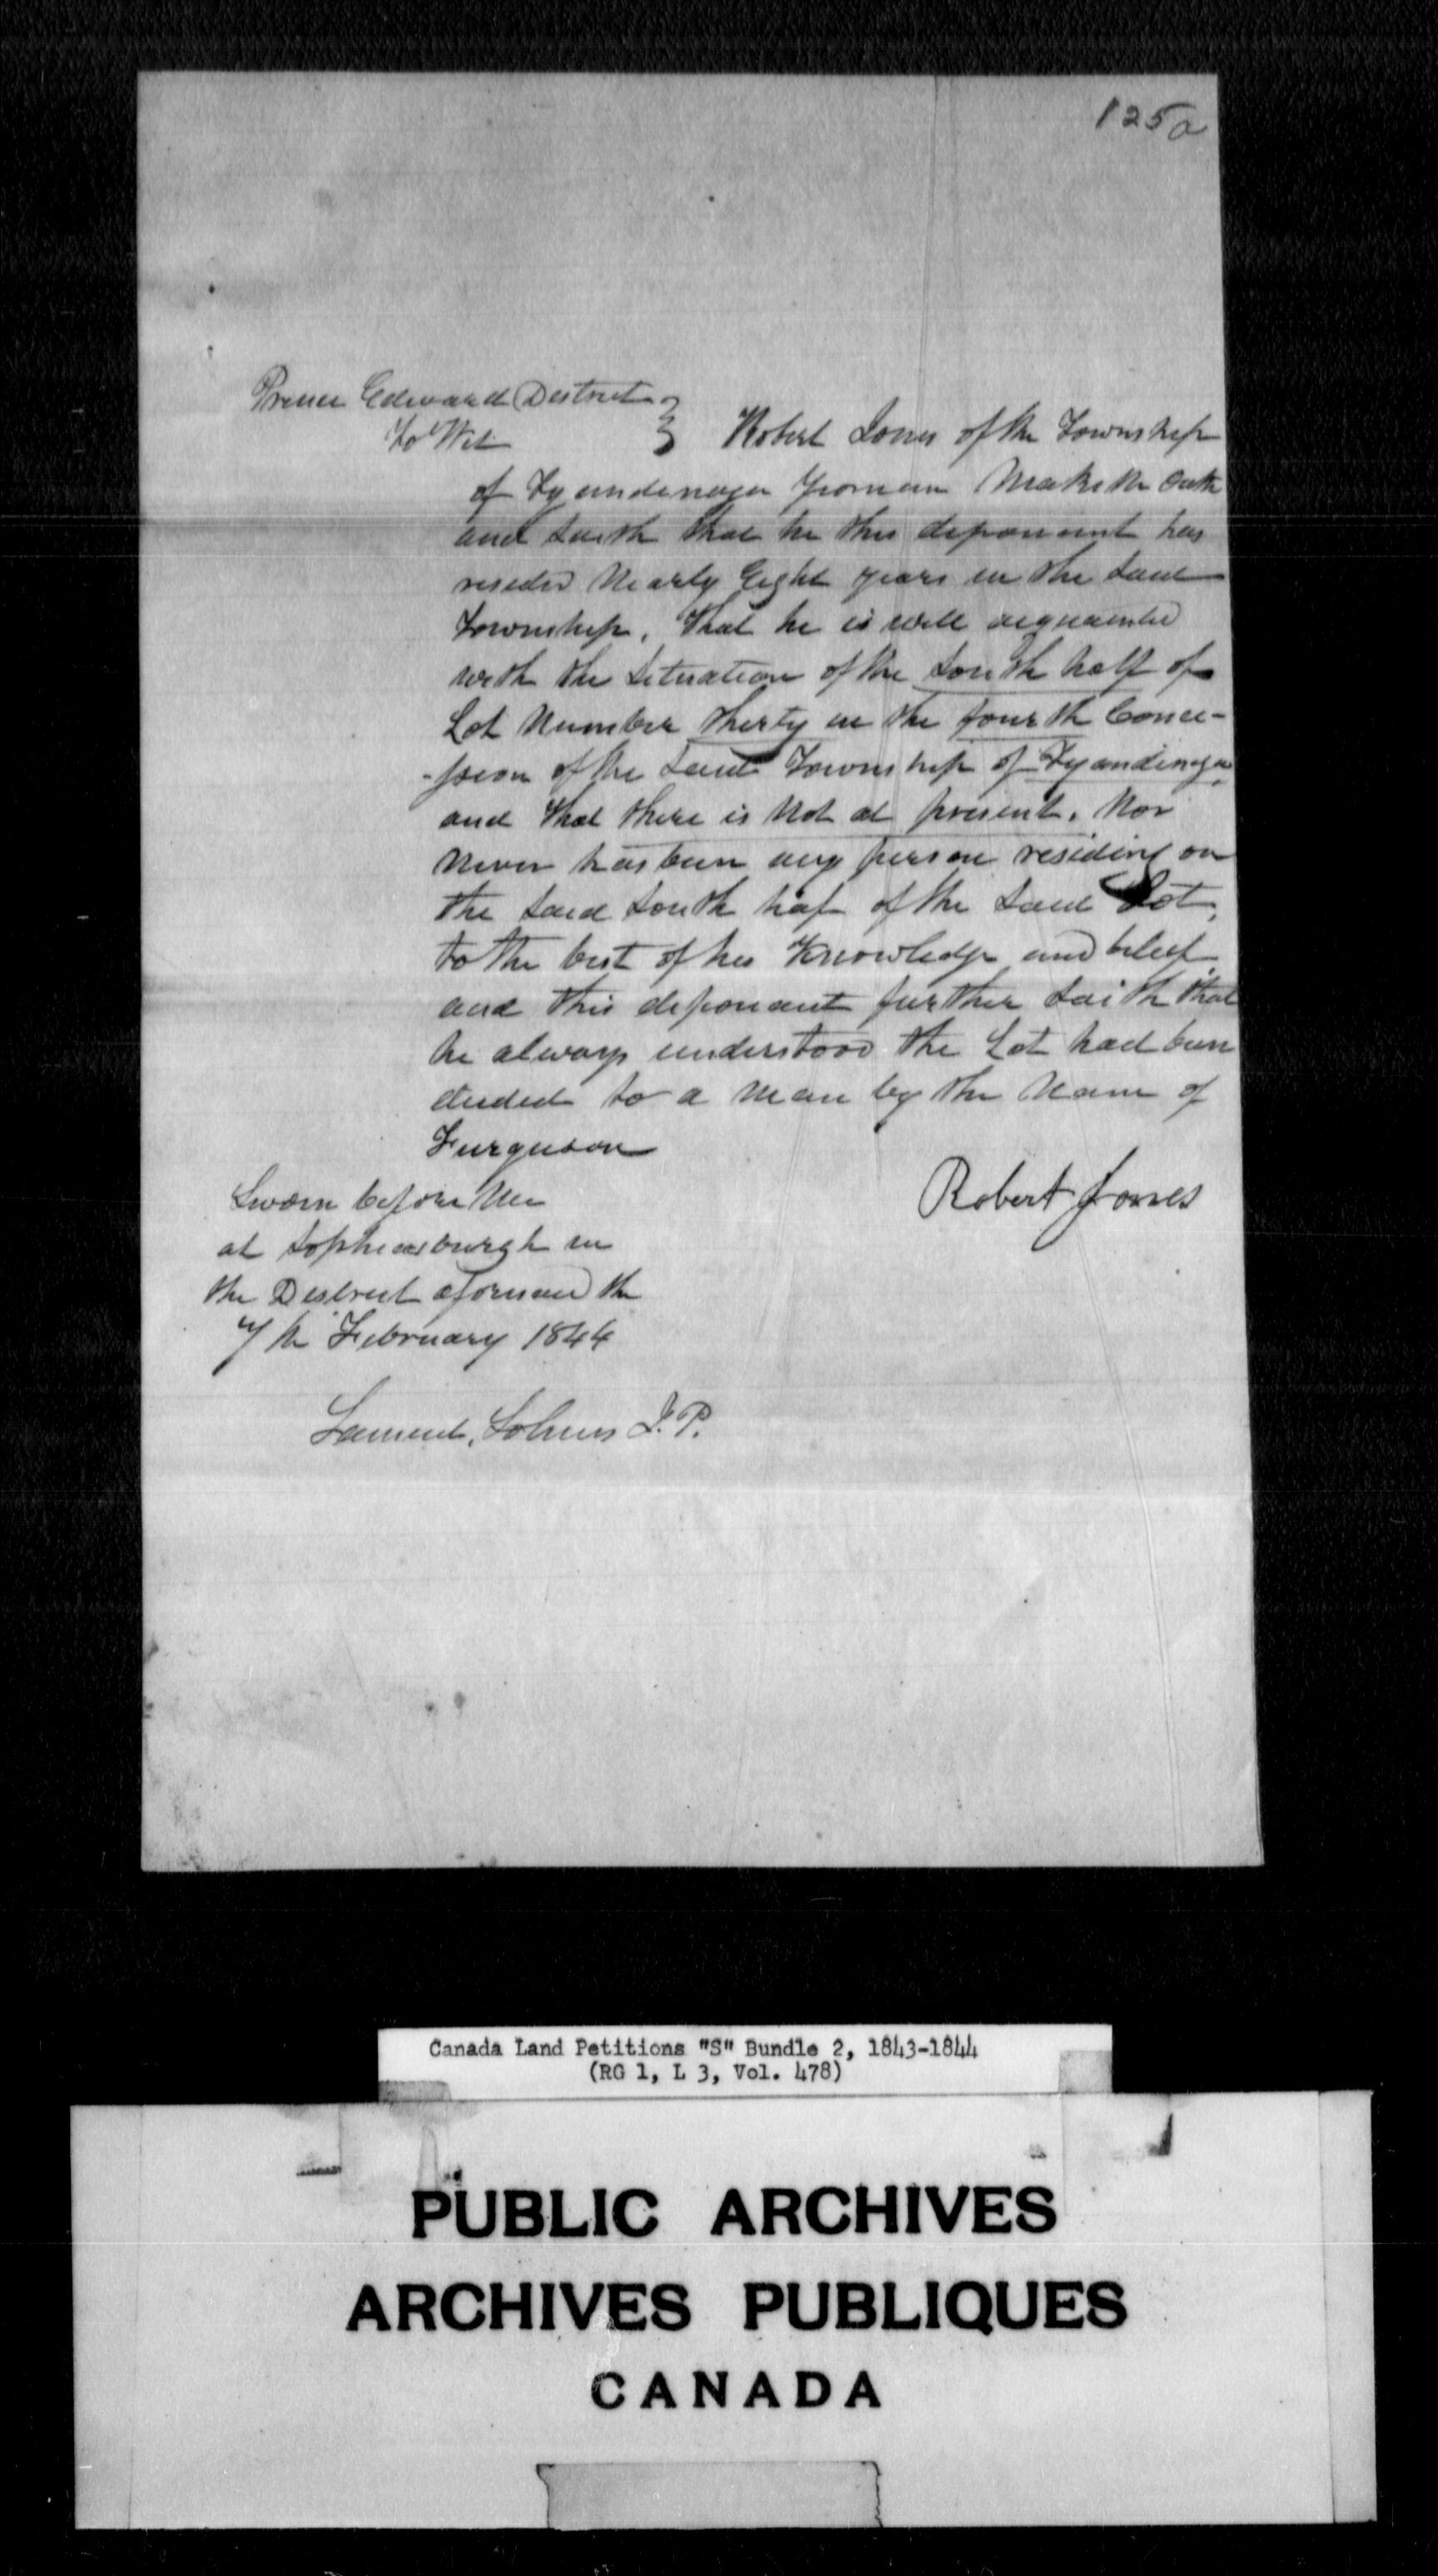 125a
Prince Edward District }
To Wit } Robert Jones of the Township
of Tyandenaga Yeoman Maketh Oath
and Saith that he this deponent has
resided Nearly Eight years in the Said
Township, that he is well acquainted
with the Situation of the South half of
Lot Number thirty in the fourth Conce-
-ssion of the Said Township of Tyandinaga
and that there is Not at present, Nor
Never has been any person residing on
the Said South haf of the Said Lot,
to the best of his Knowledge and belief
and this deponent further Saith that
he always understood the Lot had been
deeded to a Man by the Name of
Furguson
Robert Jones
Sworn before Me
at Sophiasburgh in
the District aforesaid the
7th February 1844
J.P.
Canada Land Petitions "S" Bundle 2, 1843-1844
(RG 1, L 3, Vol. 478)
PUBLIC ARCHIVES
ARCHIVES PUBLIQUES
CANADA